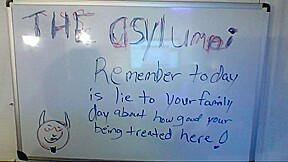 THE asylum
Remember today
is lie to your family
day about how good your
being treated here!